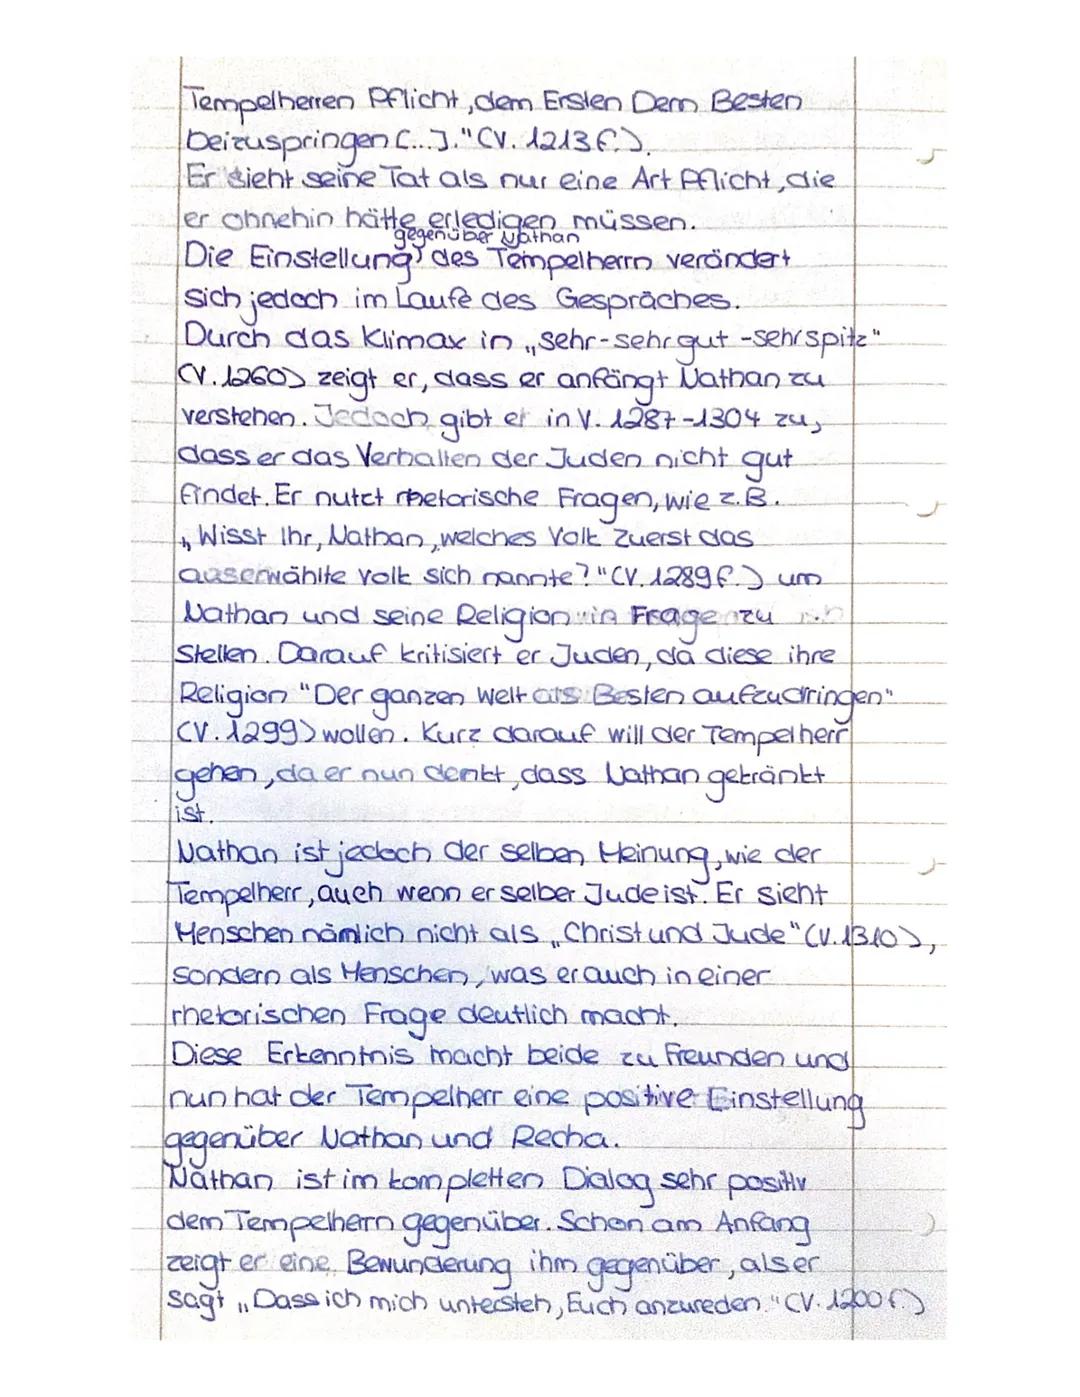 Tempelherren Pflicht, dem Ersten Dem Besten
beizuspringen [...]." (V. 1213 f.).
Er sieht seine Tat als nur eine Art Pflicht, die
er ohnehin hätte erledigen müssen.
gegenüber Nathan
Die Einstellung des Tempelherrn verändert
sich jedoch im Laufe des Gespräches.
Durch das Klimax in „sehr-sehr gut - sehr spitz"
(V. 1260) zeigt er, dass er anfängt Nathan zu
verstehen. Jedoch gibt er in V. 1287-1304 zu,
dass er das Verhalten der Juden nicht gut
findet. Er nutzt rhetorische Fragen, wie z.B.
„Wisst Ihr, Nathan, welches Volk Zuerst das
auserwählte volk sich nannte?" (V. 1289 f.) um
Nathan und seine Religion in Frage zu
Stellen. Darauf kritisiert er Juden, da diese ihre
Religion "Der ganzen Welt als Besten aufzudringen"
(V. 1299) wollen. Kurz darauf will der Tempelherr
gehen, da er nun denkt, dass Nathan gekränkt
ist.
Nathan ist jedoch der selben Meinung, wie der
Tempelherr, auch wenn er selber Jude ist. Er sieht
Menschen nämlich nicht als „Christ und Jude" (V. 1310),
sondern als Menschen, was er auch in einer
rhetorischen Frage deutlich macht.
Diese Erkenntnis macht beide zu Freunden und
nun hat der Tempelherr eine positive Einstellung
gegenüber Nathan und Recha.
Nathan ist im kompletten Dialog sehr positiv
dem Tempelherrn gegenüber. Schon am Anfang
zeigt er eine Bewunderung ihm gegenüber, als er
sagt „Dass ich mich untersteh, Euch anzureden." (V. 1200 f.)